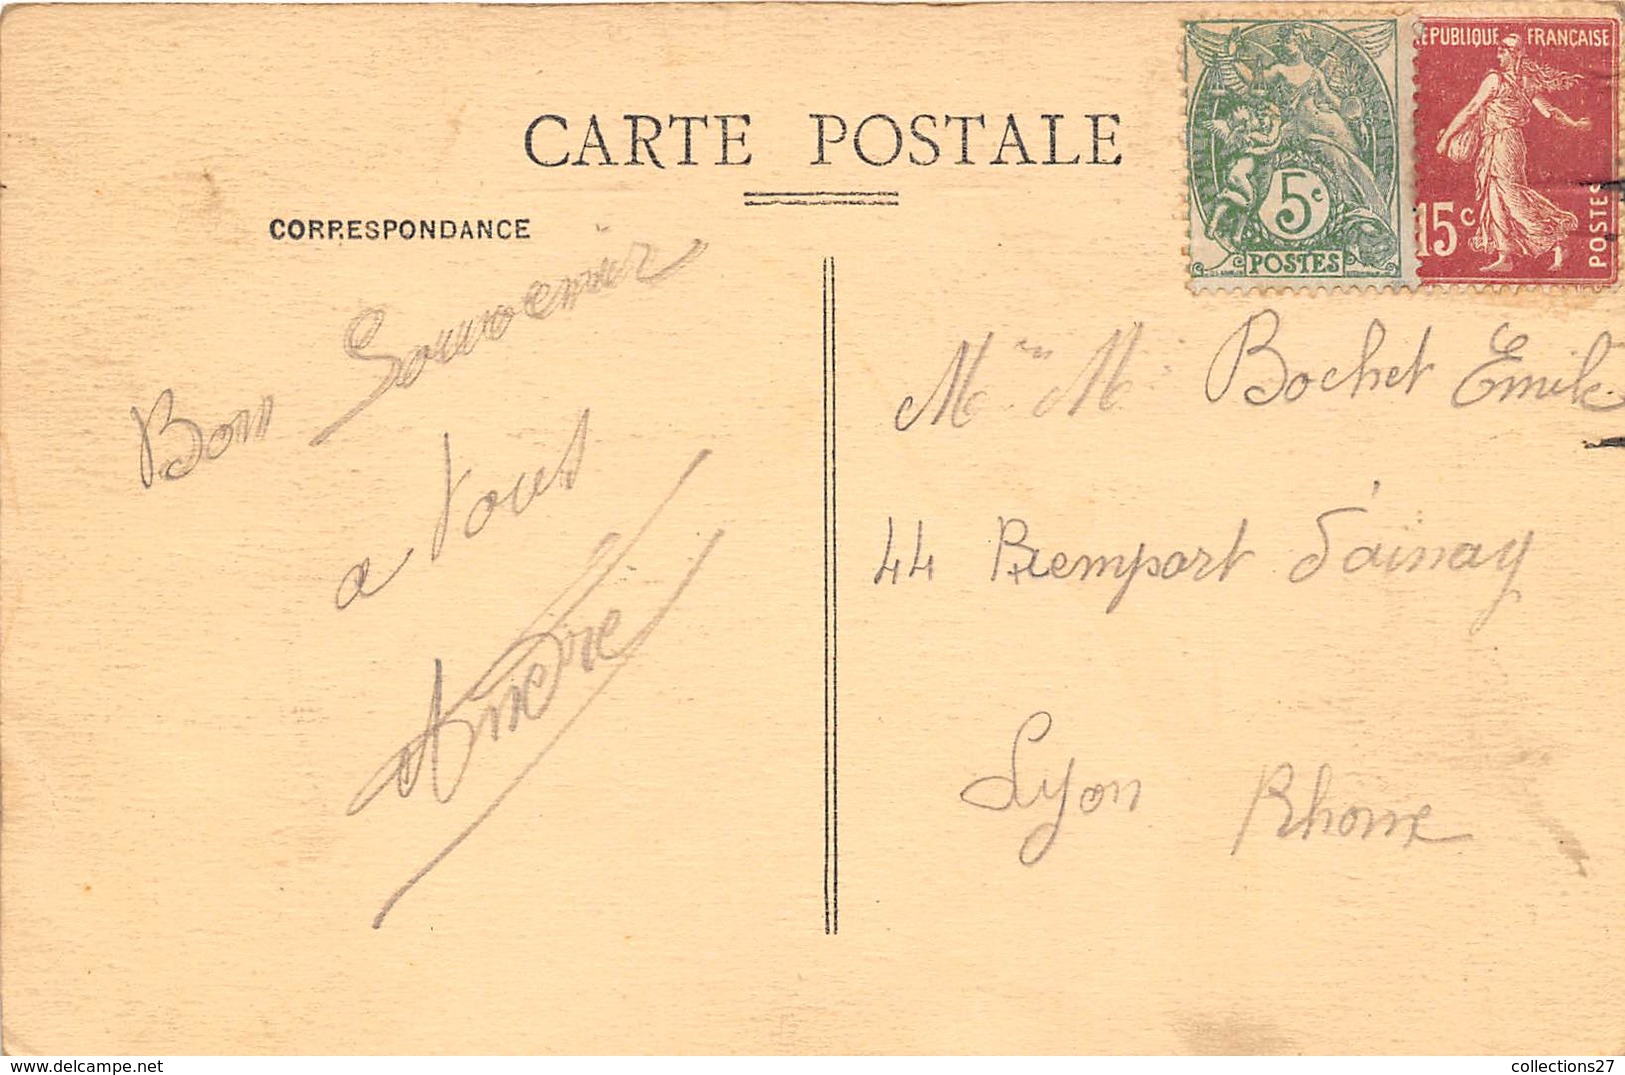 CARTE POSTALE
CORRESPONDANCE
Bon Souvenir
a tous
André
RÉPUBLIQUE FRANÇAISE
5c
POSTES
15c
POSTES
Bochet Emile
44 Rempart d'ainay
Lyon Rhone
delcampe.net
collections27